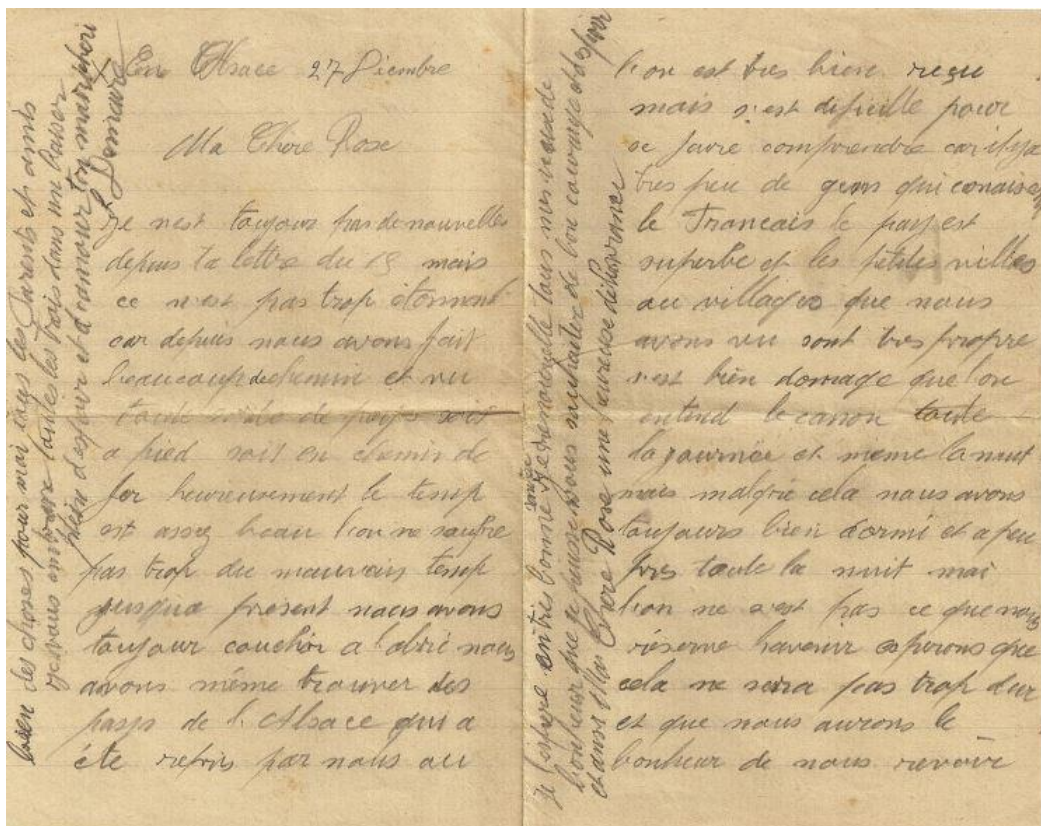 En Alsace 27 Diembre
Ma Chère Rose
Je nest toujours pas de nouvelles
depuis ta lettre du 15 mais
ce n'est pas trop étonnent
car depuis nous avons fait
beaucoup de chemin et vu
toute sorte de pays soit
a pied soit en chemin de
fer heureusement le temp
est assez beau l'on ne soufre
pas trop du mauvais temp
jusqua présent nous avons
toujour coucher a l'abri nous
avons même trouver des
pays de l'Alsace qui a
été repris par nous ou
l'on est tres bien reçu
mais s'est dificille pour
se faire comprendre car il ya
tres peu de gens qui conaisent
le Francais le pays est
superbe et les petites villes
ou villages que nous
avons vu sont tres propre
s'est bien domage que l'on
entend le canon toute
la journée et meme la nuit
mais malgrie cela nous avons
toujours bien dormi et a peu
pres toute la nuit mai
l'on ne s'est pas ce que nous
réserve l'avenir esperons que
cela ne sera pas trop dur
et que nous aurons le
bonheur de nous revoire
je vous souhaite de bon courage et d'espoir
Chere Rose une heureuse délivrance
bien des choses pour moi a tous les parents et amis
je vous embrasse toutes les trois dans un baiser
plein d'espoir et d'amour ton mari